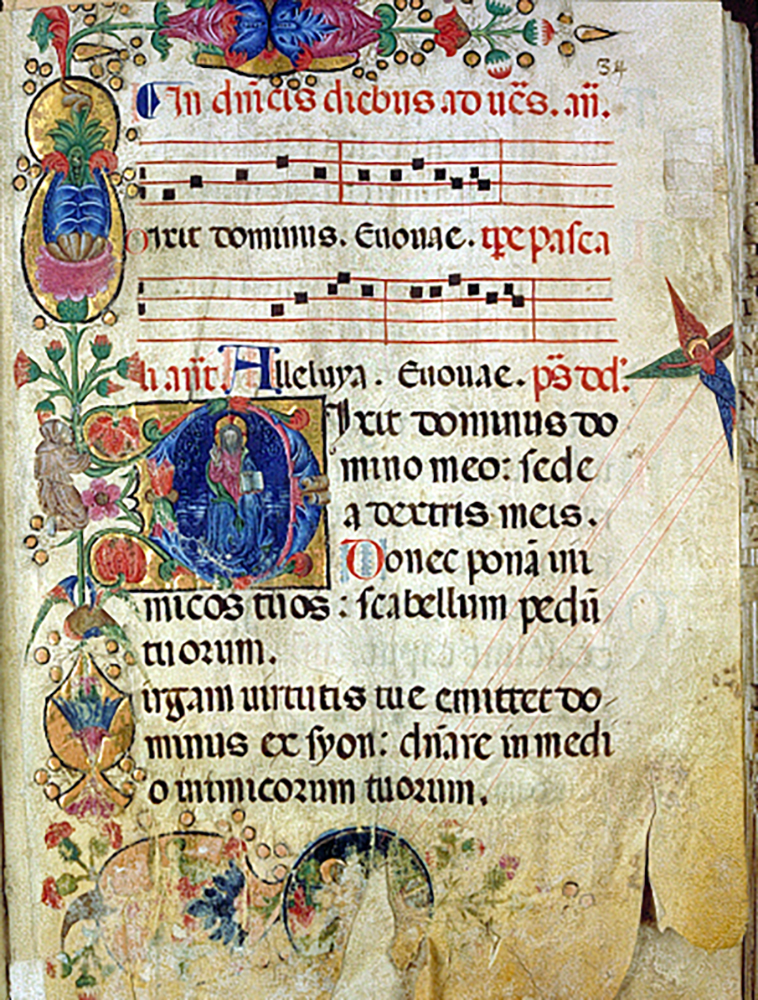 34
In dn̄icis diebus ad ūēs. an̄.
Dixit dominus. Euouae. tp̄e pasca
li ant̄. Alleluya. Euouae. ps̄ dd̄.
Dixit dominus do
mino meo: sede
a dextris meis.
Donec ponā ini
micos tuos: scabellum pedū
tuorum.
irgam uirtutis tue emittet do
minus ex syon: dn̄are in medi
o inimicorum tuorum.